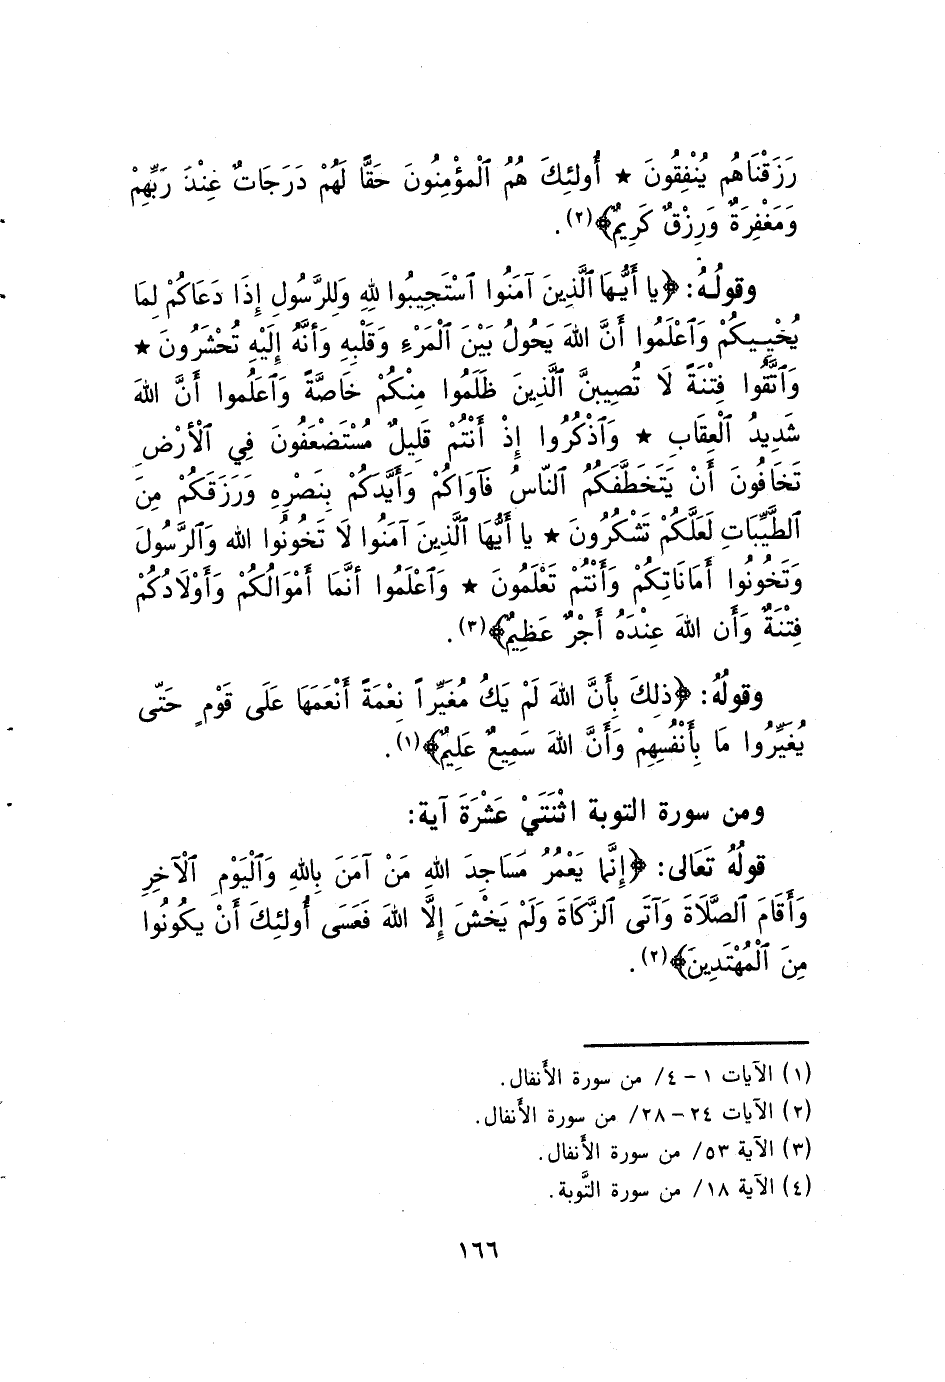 رَزَقْنَاهُم يُنْفِقُونَ ★ أُولئِكَ هُمُ ٱلْمؤْمِنُونَ حَقًّا لَهُمْ دَرَجَاتٌ عِنْدَ رَبِّهِمْ
وَمَغْفِرَةٌ وَرِزْقٌ كَرِيمٌ﴾(٢).
وقولُهُ: ﴿يا أَيُّهَا ٱلَّذِينَ آمَنُوا ٱسْتَجِيبُوا للهِ وَلِلرَّسُولِ إِذَا دَعَاكُمْ لِمَا
يُحْيِيكُمْ وَٱعْلَمُوا أَنَّ اللهَ يَحُولُ بَيْنَ ٱلْمَرْءِ وَقَلْبِهِ وَأنَّهُ إِلَيْهِ تُحْشَرُونَ ★
وَٱتَّقُوا فِتْنَةً لَا تُصِيبنَّ ٱلَّذِينَ ظَلَمُوا مِنْكُمْ خَاصَّةً وَٱعلَموا أَنَّ اللهَ
شَدِيدُ ٱلْعِقَابِ ★ وَٱذْكُرُوا إِذْ أَنْتُمْ قَلِيلٌ مُسْتَضْعَفُونَ فِي ٱلْأرْضِ
تَخَافُونَ أَنْ يَتَخَطَّفَكُمُ ٱلنّاسُ فَآوَاكُمْ وَأَيَّدَكُمْ بِنَصْرِهِ وَرَزَقَكُمْ مِنَ
ٱلطَّيِّبَاتِ لَعَلَّكُمْ تَشْكُرُونَ ★ يا أَيُّهَا ٱلَّذِينَ آمَنُوا لَا تَخُونُوا الله وَٱلرَّسُولَ
وَتَخُونُوا أَمَانَاتِكُمْ وَأَنْتُمْ تَعْلَمُونَ ★ وَٱعْلَمُوا أنَّمَا أَمْوَالُكُمْ وَأَوْلَادُكُمْ
فِتْنَةٌ وَأَن اللهَ عِنْدَهُ أَجْرٌ عَظِيمٌ﴾(٣).
وقولُهُ: ﴿ذلِكَ بِأَنَّ اللهَ لَمْ يَكُ مُغَيِّراً نِعْمَةً أَنْعَمَهَا عَلَى قَوْمٍ حَتّى
يُغَيِّرُوا مَا بِأَنْفُسِهِمْ وَأَنَّ اللهَ سَمِيعٌ عَلِيمٌ﴾(١).
ومن سورة التوبة اثْنَتَيْ عَشْرَةَ آية:
قولُهُ تَعَالى: ﴿إِنَّمَا يَعْمُرُ مَسَاجِدَ اللهِ مَنْ آمَنَ بِاللهِ وَٱلْيَوْمِ ٱلْآخِرِ
وَأَقَامَ ٱلصَّلَاةَ وَآتَى ٱلزَّكَاةَ وَلَمْ يَخْشَ إِلَّا اللهَ فَعَسَى أُولئِكَ أَنْ يكُونُوا
مِنَ ٱلْمُهْتَدِينَ﴾(٢).
(١) الآيات ١ - ٤/ من سورة الأَنفال.
(٢) الآيات ٢٤ - ٢٨/ من سورة الأَنفال.
(٣) الآية ٥٣/ من سورة الأَنفال.
(٤) الآية ١٨/ من سورة التَّوبة.
١٦٦